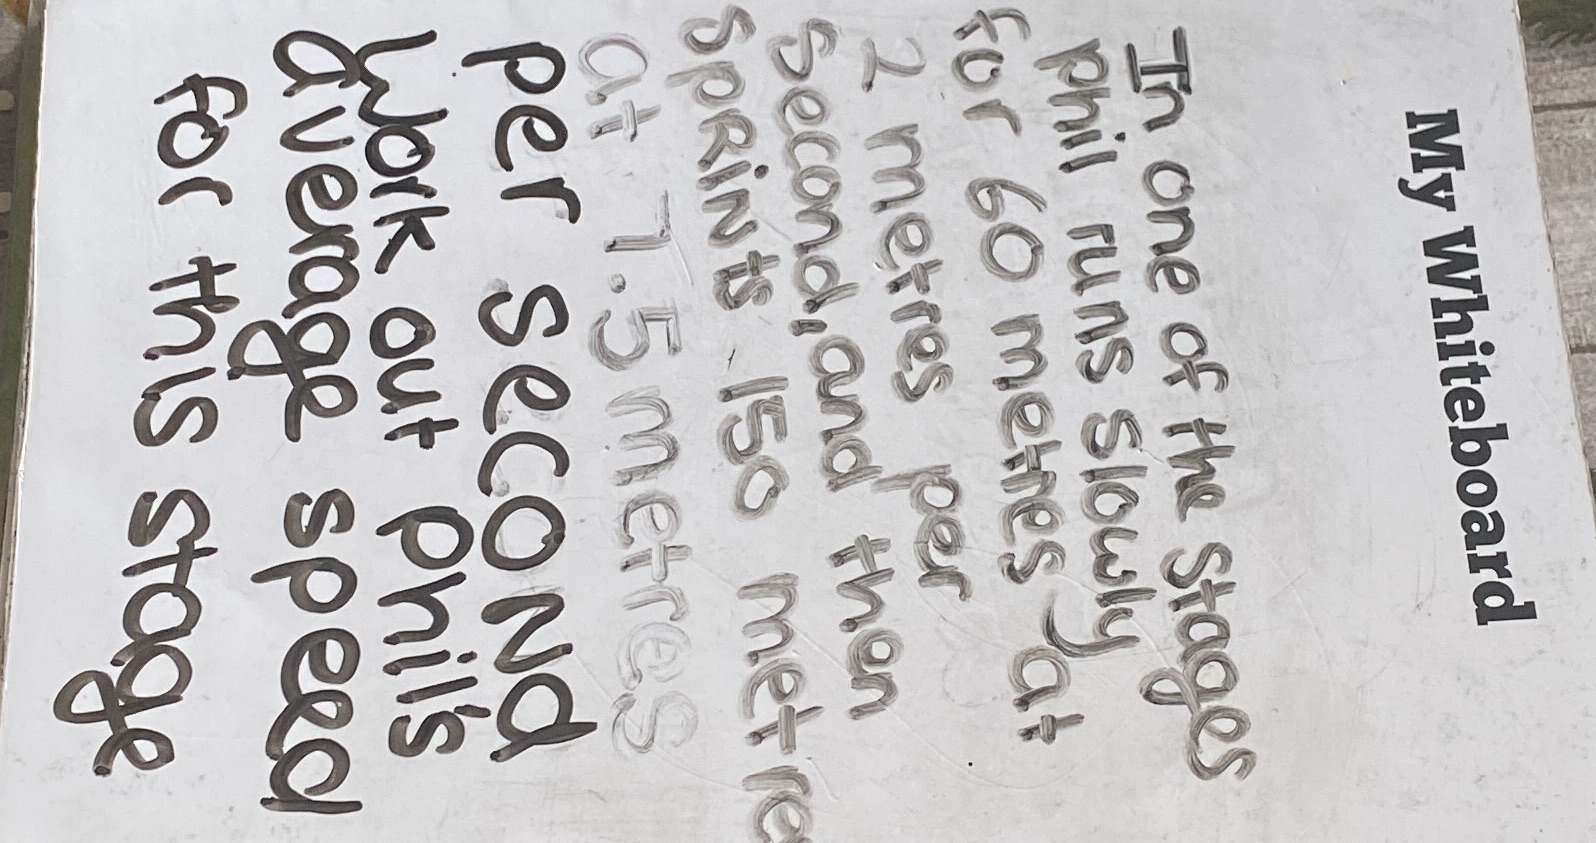 My Whiteboard
In one of the Stages
Phil runs Slowly
for 60 metres at
2 metres per
Second, and than
SpRiNts 150 metre
at 7.5 metres
per SecoNd
Work out Phil's
average speed
for this stage